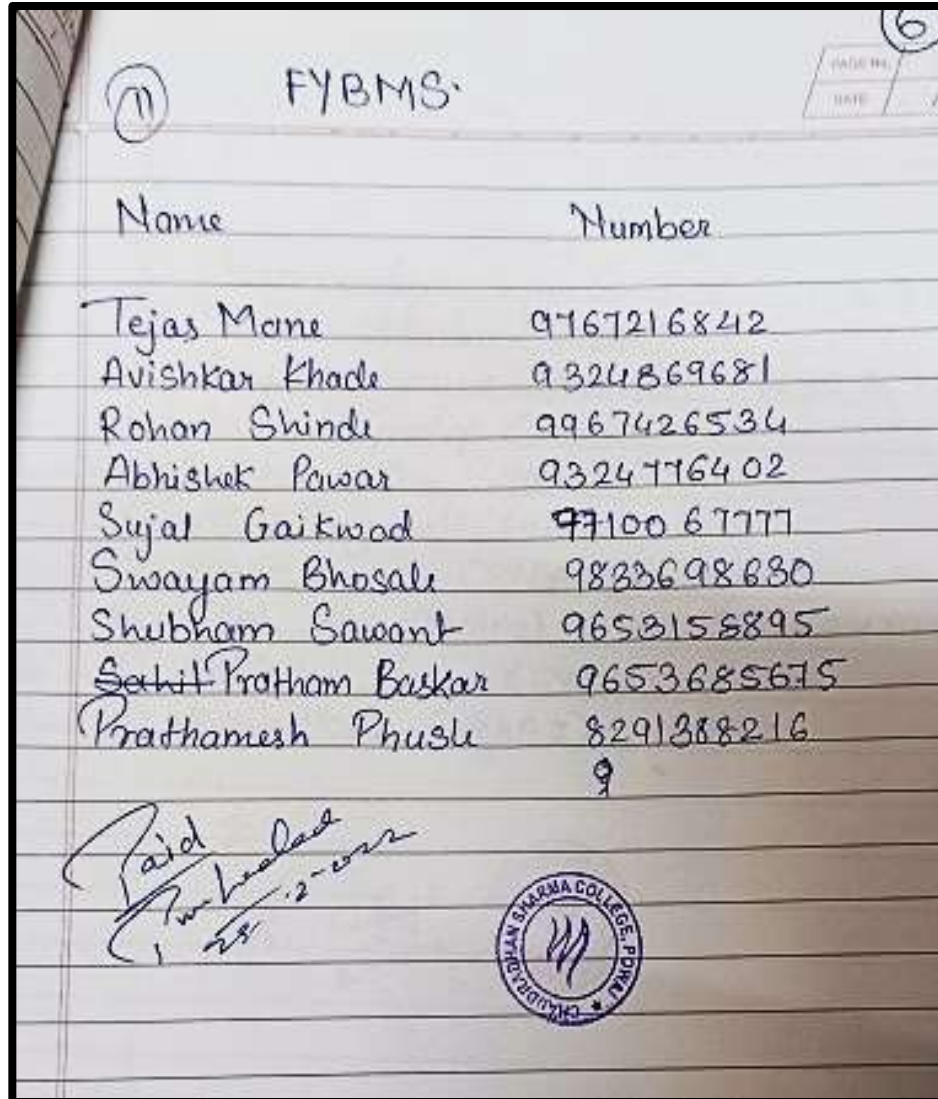 6
PAGE No.
DATE
11 FYBMS.
Name Number
Tejas Mane 9767216842
Avishkar Khade 9324869681
Rohan Shinde 9967426534
Abhishek Pawar 9324776402
Sujal Gaikwad 9710067777
Swayam Bhosale 9833698630
Shubham Sawant 9653158895
Sahil Pratham Baskar 9653685675
Prathamesh Phusle 8291388216
9
Paid
CHANDRABHAN SHARMA COLLEGE, POWAI